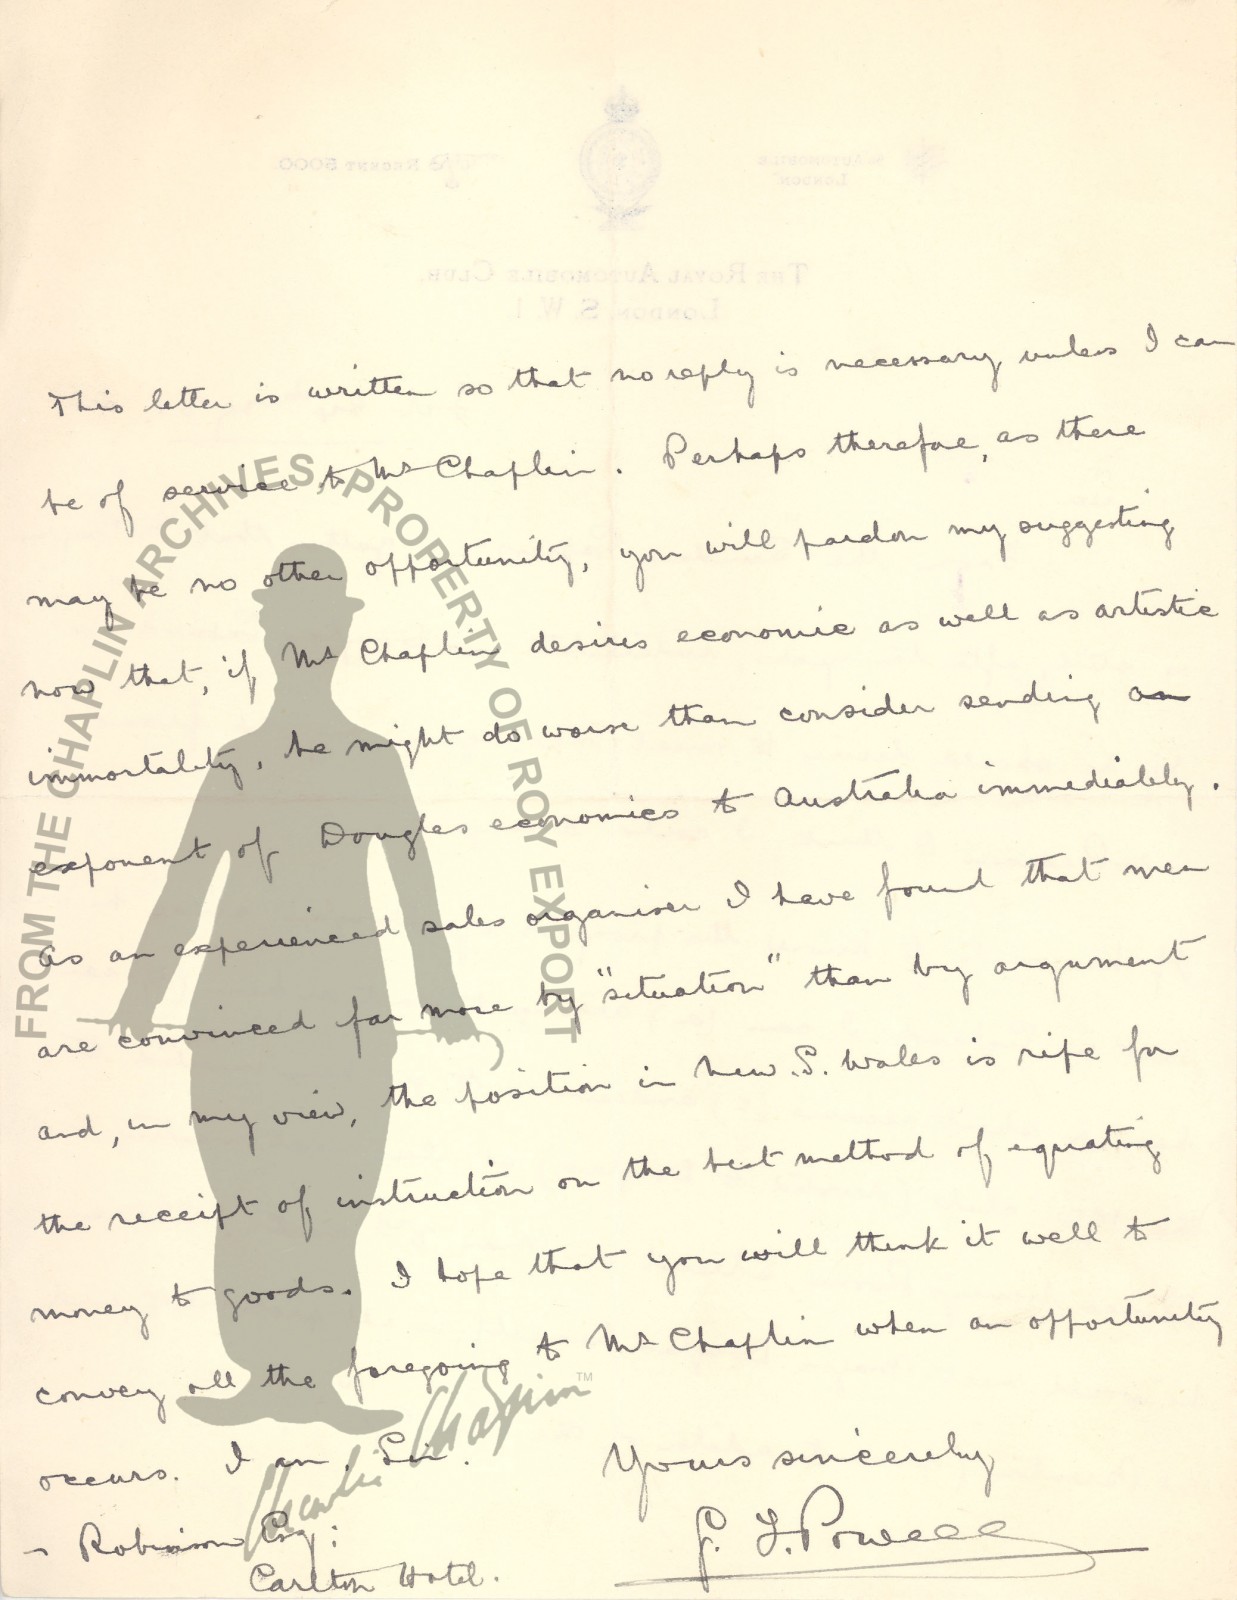 This letter is written so that no reply is necessary unless I can
be of service to Mr Chaplin. Perhaps therefore, as there
may be no other opportunity, you will pardon my suggesting
now that, if Mr Chaplin desires economic as well as artistic
immortality, he might do worse than consider sending an
exponent of Douglas economics to Australia immediately.
As an experienced sales organiser I have found that men
are convinced far more by "situation" than by argument
and, in my view, the position in New. S. Wales is ripe for
the receipt of instruction on the best method of equating
money to goods. I hope that you will think it well to
convey all the foregoing to Mr Chaplin when an opportunity
occurs. I am, Sir.
Yours sincerely
Powell
— Robinson Esq:
Carlton Hotel.
FROM THE CHAPLIN ARCHIVES, PROPERTY OF ROY EXPORT
Charlie Chaplin™
REGENT 5000
AUTOMOBILE
LONDON
THE ROYAL AUTOMOBILE CLUB,
LONDON, S. W. 1.